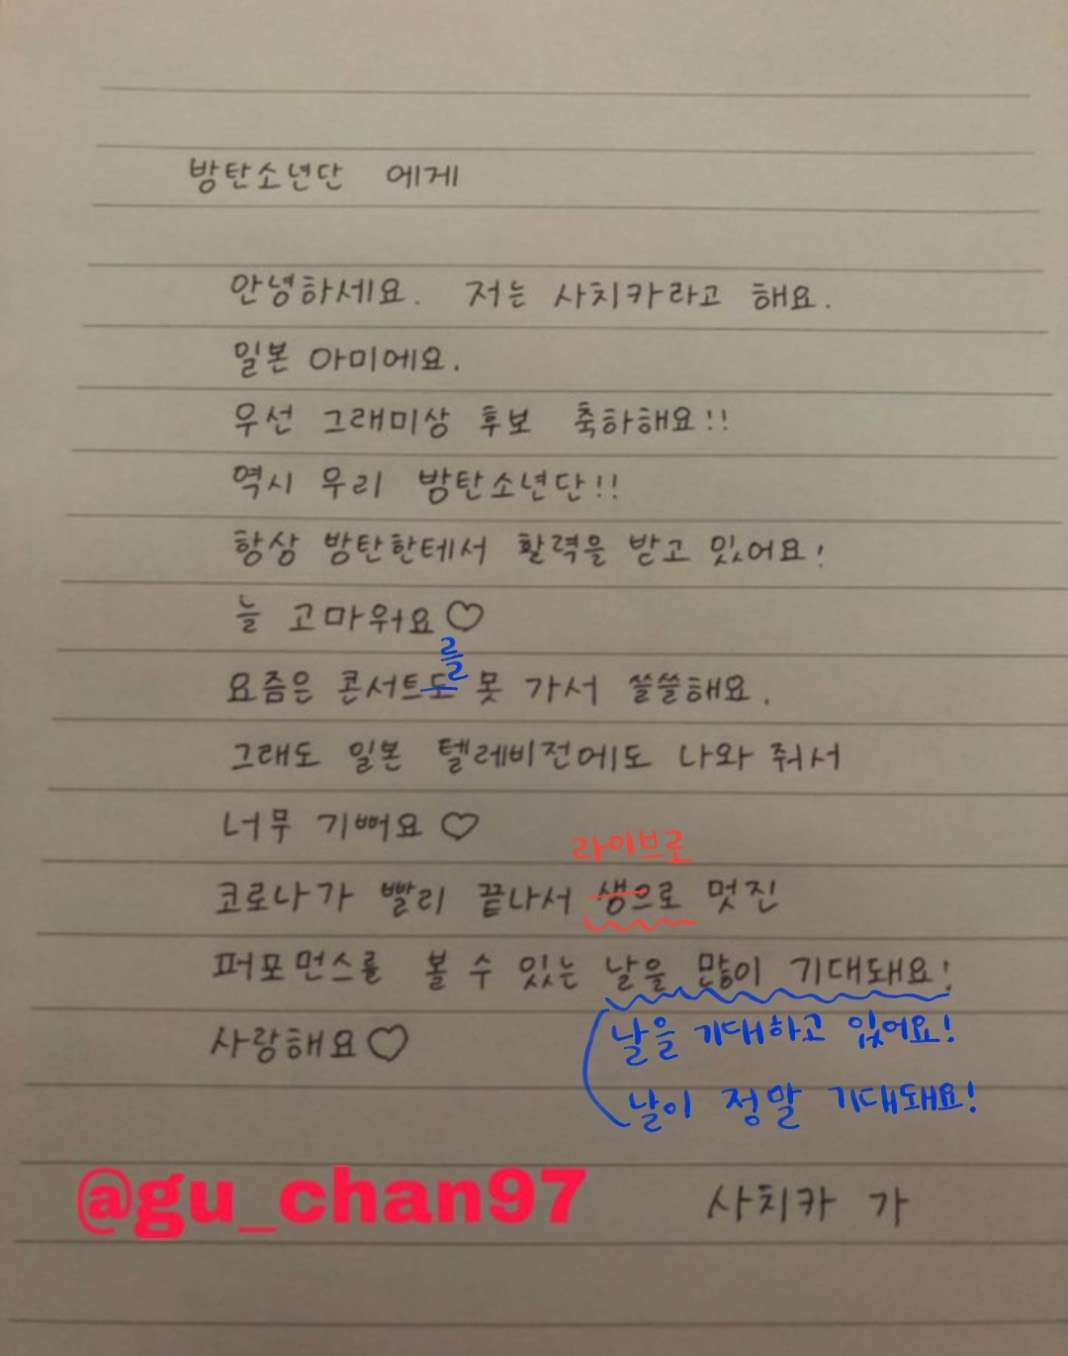 방탄소년단 에게
안녕하세요. 저는 사치카라고 해요.
일본 아미에요.
우선 그래미상 후보 축하해요!!
역시 우리 방탄소년단!!
항상 방탄한테서 활력을 받고 있어요!
늘 고마워요♡
를
요즘은 콘서트도 못 가서 쓸쓸해요.
그래도 일본 텔레비전에도 나와 줘서
너무 기뻐요♡
라이브로
코로나가 빨리 끝나서 생으로 멋진
퍼포먼스를 볼 수 있는 날을 많이 기대돼요!
날을 기대하고 있어요!
사랑해요♡
날이 정말 기대돼요!
@gu_chan97
사치카 가